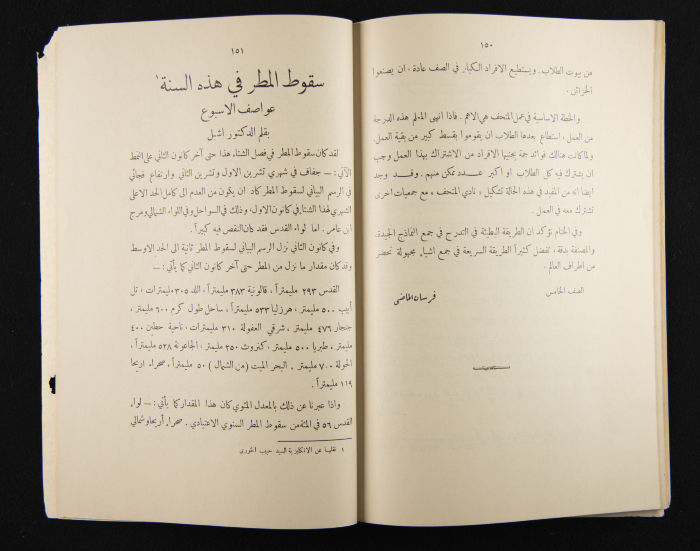 ١٥٠
من بيوت الطلاب . ويستطيع الافراد الكبار في الصف عادة ، ان يصنعوا
الخزائن .
والخطة الاساسية في عمل المتحف هي الاهم . فاذا انهى المعلم هذه الدرجة
من العمل ، استطاع بعدها الطلاب ان يقوموا بقسط كبير من بقية العمل.
ولما كانت هنالك فوائد جمة يجنيها الافراد من الاشتراك بهذا العمل وجب
ان يشترك فيه كل الطلاب او اكبر عدد ممكن منهم . وقد وجد
ايضا انه من المفيد في هذه الحالة تشكيل « نادي المتحف » مع جمعيات اخرى
تشترك معه في العمل .
وفي الختام نؤكد ان الطريقة البطيئة في التدرج في جمع النماذج الجيدة،
والمصنفة بدقة ، تفضل كثيراً الطريقة السريعة في جمع اشياء مجهولة تحضر
من اطراف العالم .
الصف الخامس
فرسان الماضي
١٥١
سقوط المطر في هذه السنة ١
عواصف الاسبوع
بقلم الدكتور اشبل
لقد كان سقوط المطر في فصل الشتاء هذا حتى آخر كانون الثاني على النمط
الآتي : — جفاف في شهري تشرين الاول وتشرين الثاني وارتفاع فجائي
في الرسم البياني لسقوط المطر كاد ان يكون من العدم الى كامل الحد الاعلى
الشهري لهذا الشتاء في كانون الاول ، وذلك في السواحل وفي اللواء الشمالي ومرج
ابن عامر . اما لواء القدس فقد كان النقص فيه كبيراً .
وفي كانون الثاني نزل الرسم البياني لسقوط المطر ثانية الى الحد الاوسط
وقد كان مقدار ما نزل من المطر حتى آخر كانون الثاني كما يأتي : —
القدس ٢٩٣ مليمتراً ، قالونية ٣٨٣ مليمتراً ، اللد ٣٠٥ مليمترات ، تل
أبيب ٥٠٠ مليمتر ، هرزليا ٥٣٣ مليمتراً ، ساحل طول كرم ٦٠٠ مليمتر ،
جنجار ٤٧٦ مليمتر ، شرقي العفولة ٣١٠ مليمترات ، ناحية حطين ٤٠٠
مليمتر ، طبريا ٥٠٠ مليمتر ، كنروت ٢٥٠ مليمتر ، الجاعونة ٥٢٨ مليمتراً ،
الحولة ٧٠٠ مليمتر . البحر الميت ( من الشمال ) ٥٠ مليمتراً ، صحراء اريحا
١١٩ مليمتراً .
واذا عبرنا عن ذلك بالمعدل المئوي كان هذا المقدار كما يأتي : — لواء
القدس ٥٦ في المئة من سقوط المطر السنوي الاعتيادي . صحراء أريحا وشمالي
١ نقلها عن الانكليزية السيد حبيب الخوري